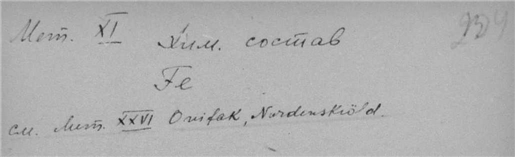 Мет. XI Хим. состав
Fe
см. Мет. XXVI Ovifak, Nordenskiöld.